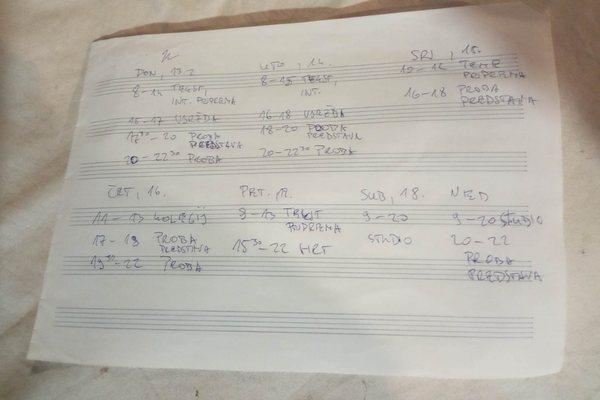 PON, 13.2
8-14 TEKST,
INT. POPERMA
16-17 UVREĐA
17³⁰-20 PROBA
PREDSTAVA
20-22³⁰ PROBA
UTO, 14.
8-15 TEKST,
INT.
16-18 UVREĐA
18-20 PROBA
PREDSTAVA
20-22³⁰ PROBA
SRI, 15.
10-16
16-18 PROBA
PREDSTAVA
ČET, 16.
11-13 KOLEGIJ
17-19 PROBA
PREDSTAVA
19³⁰-22 PROBA
PET. 17.
9-13 TEKST
15³⁰-22 HRT
SUB, 18.
9-20
STUDIO
NED
9-20 STUDIO
20-22
PROBA
PREDSTAVA